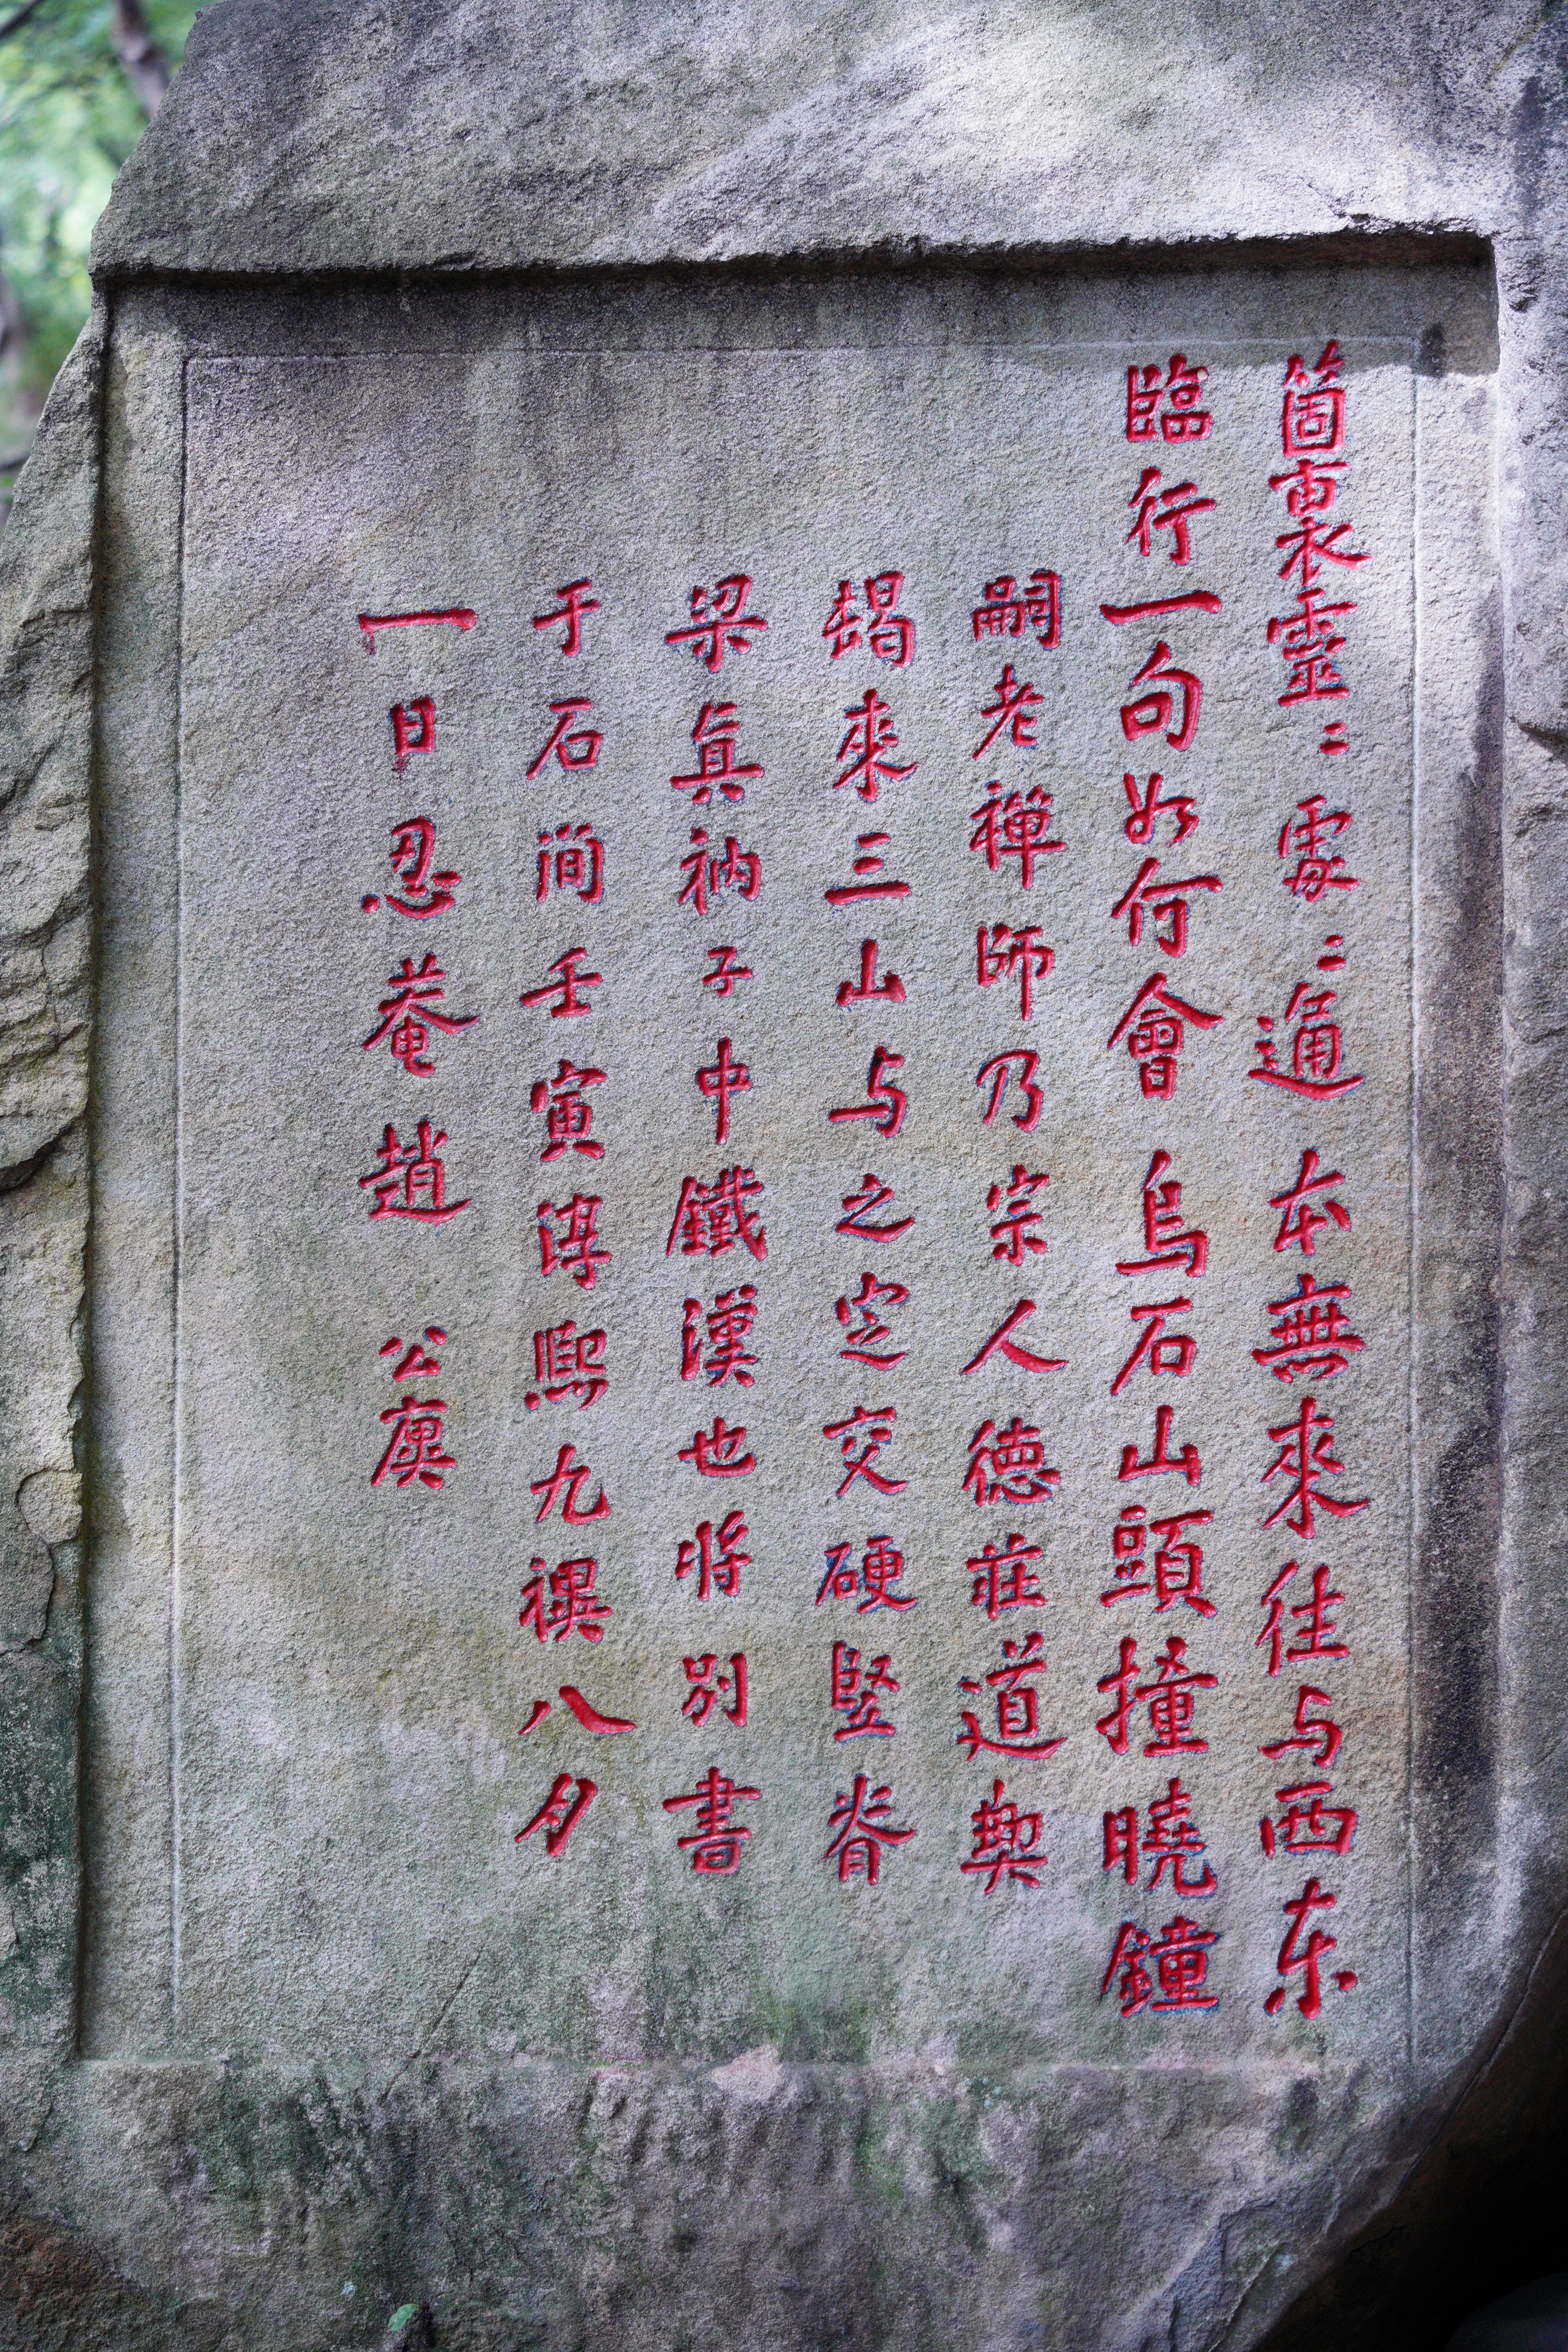 箇裏靈〻處〻通本無來往与西东
臨行一句如何會烏石山頭撞曉鐘
嗣老禅師乃宗人德莊道契
朅來三山与之定交硬竪脊
梁真衲子中鐵漢也将别書
于石澗壬寅淳熙九禩八月
一日忍菴趙公廙